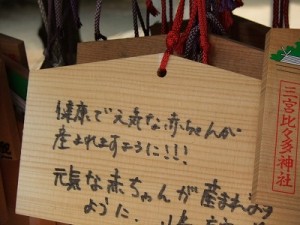 健康で元気な赤ちゃんが
産まれますように!!!
元気な赤ちゃんが産まれます
ように.
三宮比々多神社